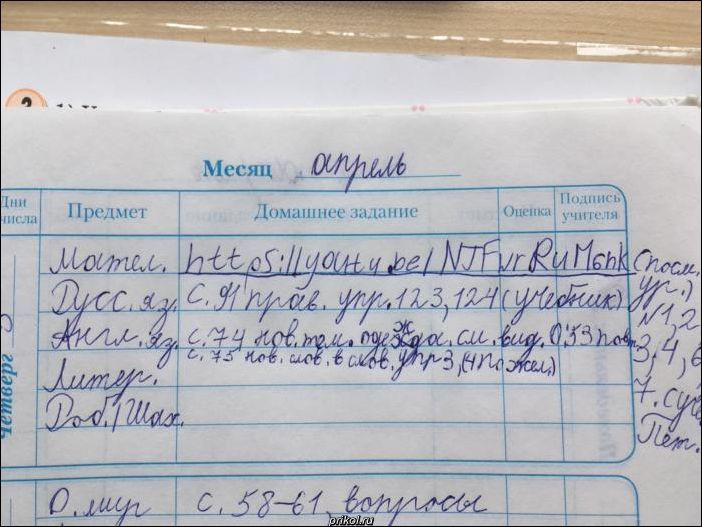 3
Месяц апрель
Дни
числа
Предмет
Домашнее задание
Оценка
Подпись
учителя
Четверг
Матем. https://youtu.be/NJFvrRuM6hk (посм. ур.)
Русс. яз. с. 91 прав. упр. 123, 124 (учебник) №1,2
Англ. яз. с. 74 нов. тем. см. вид. 0,33 повт. 3,4,6
с. 75 нов. слов. в слов. упр 3, (4 по жел.)
Литер. 7.
Раб./Шах. Пет.
О. мир с. 58-61, вопросы
prikol.ru